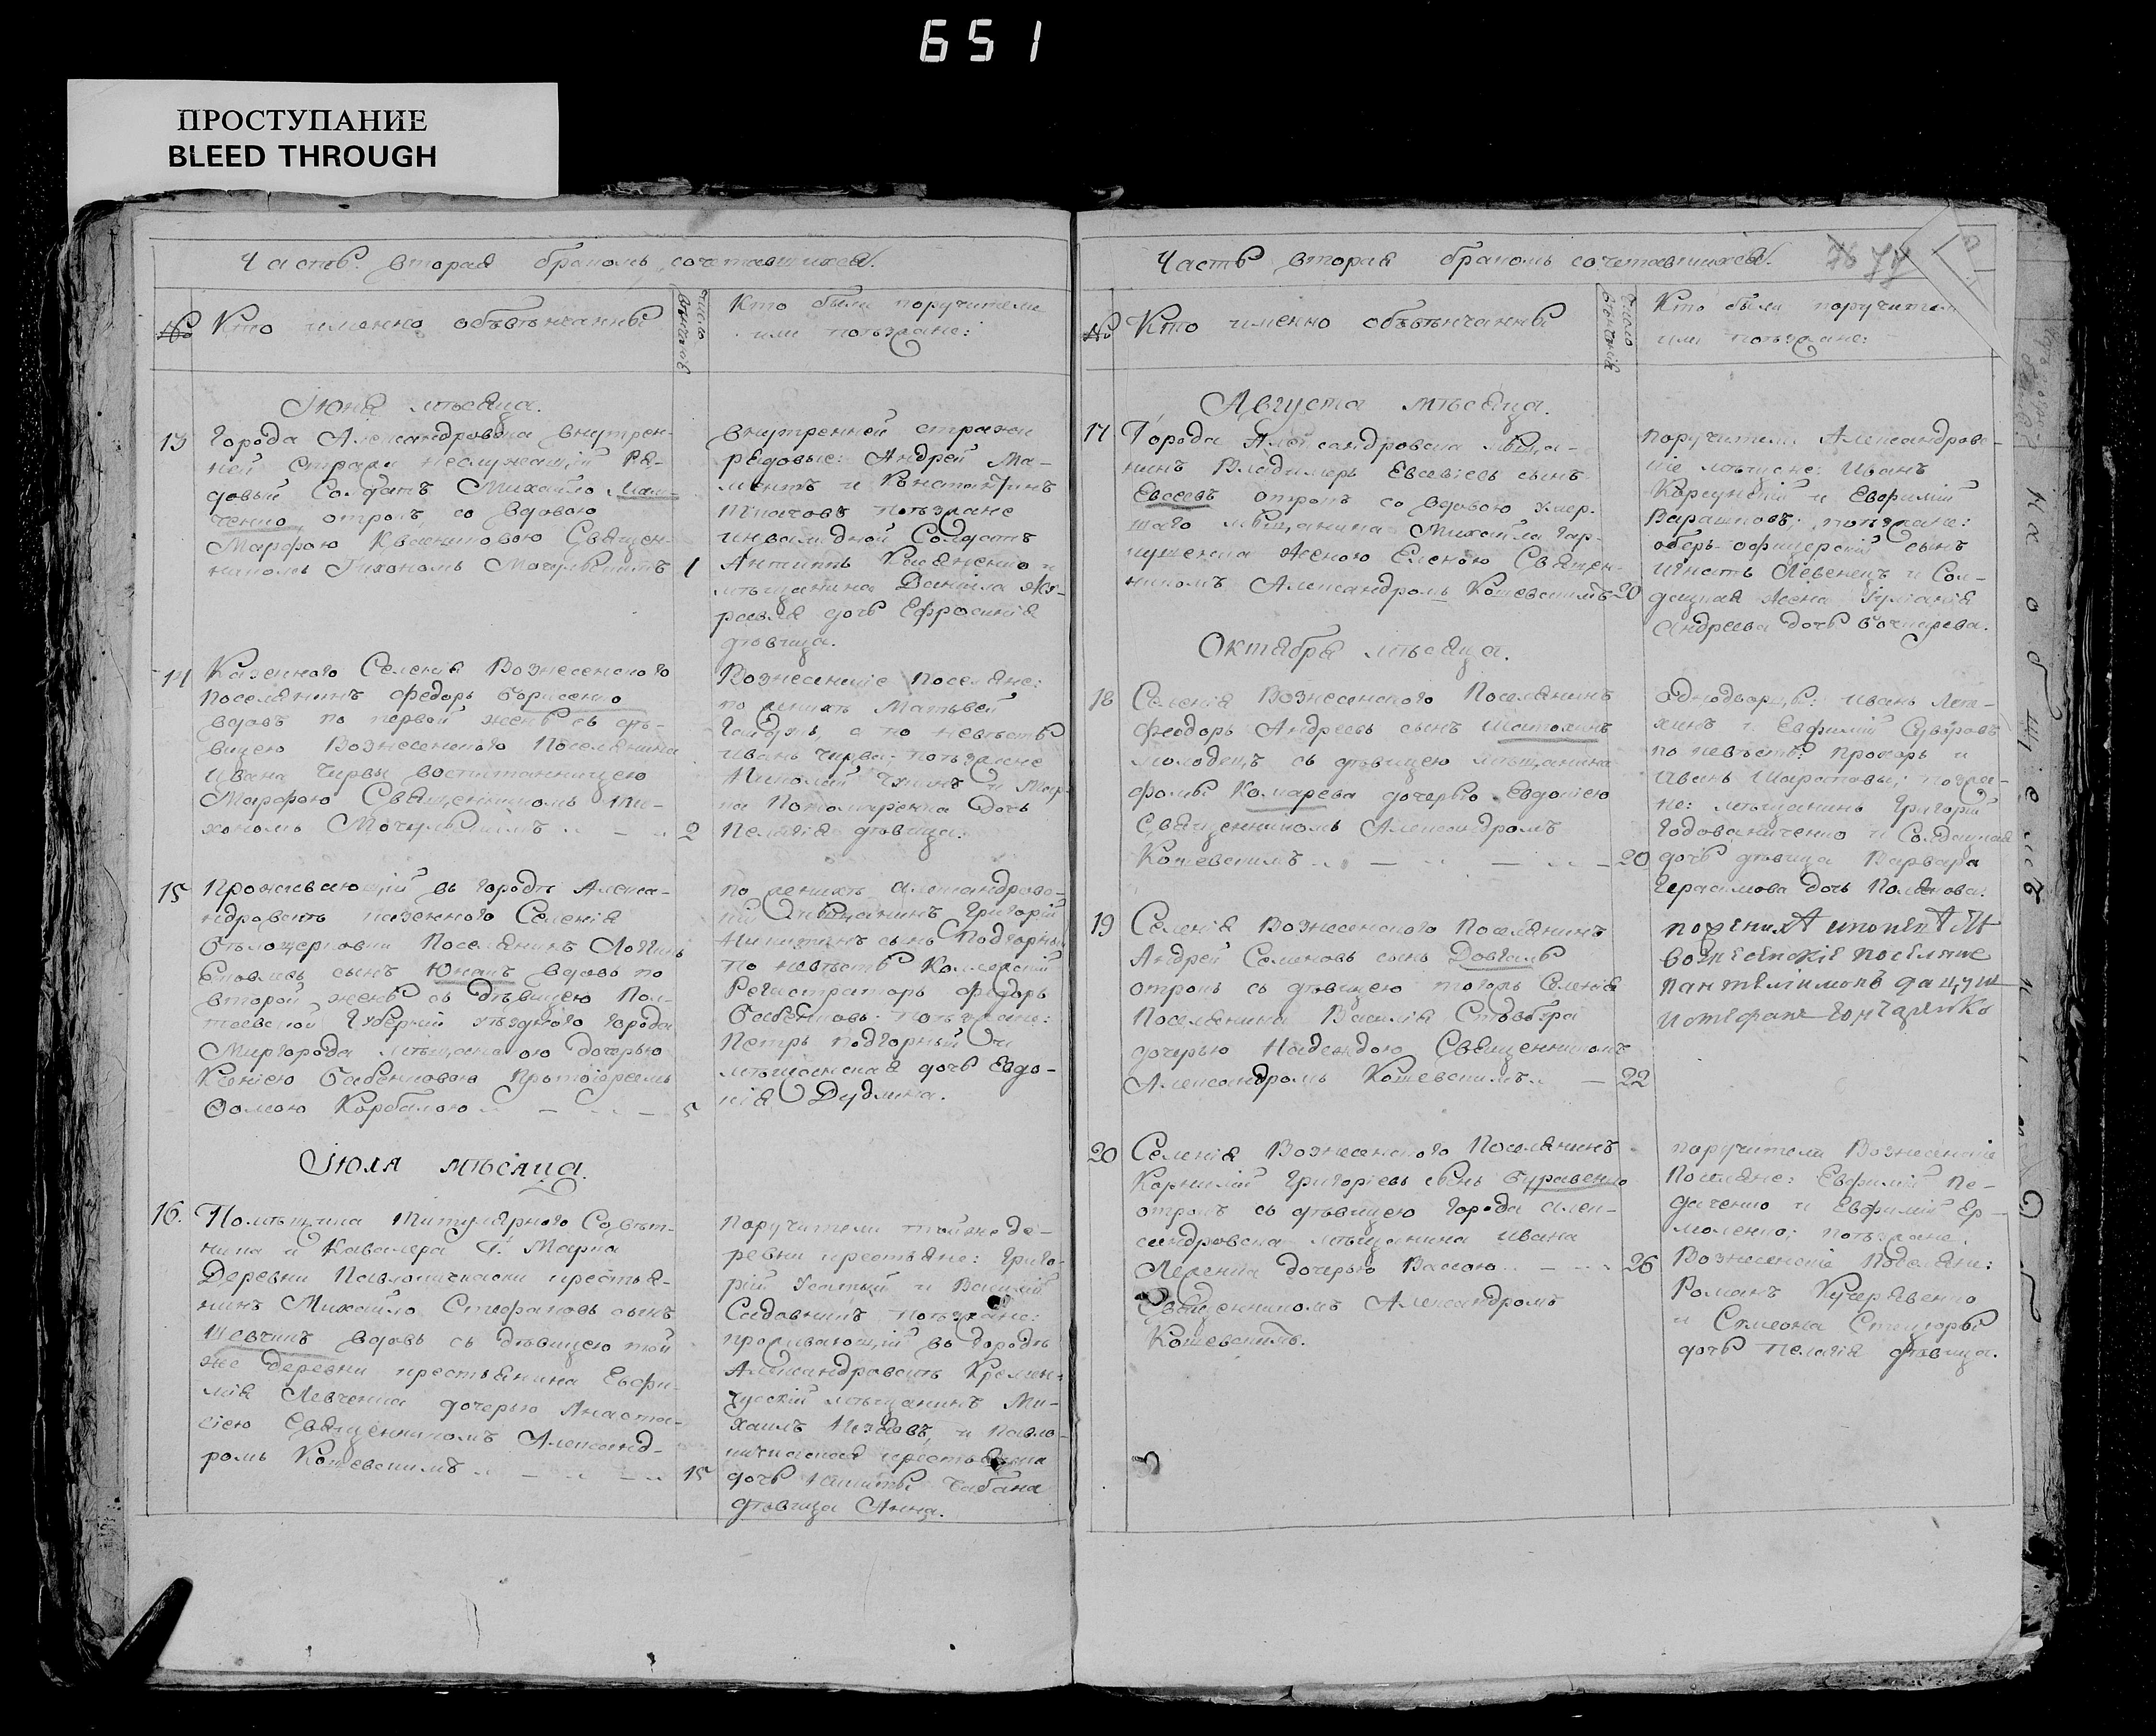 651
ПРОСТУПАНИЕ
BLEED THROUGH
Часть вторая бракомъ сочетавшихся.
№ Кто именно обвѣнчанны
число вѣнчаній
Кто были поручители
или поѣзжане:
Іюня мѣсяца.
13 Города Александровска внутрен-
ней стражи неслужащій ря-
довый Солдатъ Михайло
отрокъ, со вдовою
Марфою Квашниновою Священ-
никомъ Тихономъ Мочульскимъ 1
внутренней стражи
рядовые: Андрей Ма-
и Константинъ
Ткачовъ поѣзжане
инвалидной Солдатъ
Антипъ и
мѣщанина Даніила Жу-
равля дочь Ефросинія
дѣвица.
14 Казенного Селенія Вознесенского
поселянинъ Федоръ Борисенко
вдовъ по первой женѣ съ дѣ-
вицею Вознесенского Поселянина
Ивана Чирвы воспитанницею
Марфою Священникомъ Ти-
хономъ Мочульскимъ 2
Вознесенскіе Поселяне:
по женихѣ Матвей
Гайдукъ, а по невѣстѣ
Иванъ Чирва; поѣзжане
Николай и
Дочь
Пелагія дѣвица.
15 Проживающій въ городѣ Алекса-
ндровскѣ казенного Селенія
Бѣлоцерковки Поселянинъ Логинъ
Яковлевъ сынъ Юнакъ вдовъ по
второй женѣ съ Дѣвицею Пол-
тавской Губерніи уѣздного города
Миргорода мѣщанскою дочерью
Ксеніею Бабенковою Протоіереемъ
Ѳомою Корбалою 5
по женихѣ Александровс-
кій мѣщанинъ Григорій
Никитинъ сынъ Подгорный
по невѣстѣ Коллежскій
Регистраторъ Федоръ
Бабенковъ. поѣзжане:
Петръ Подгорный и
мѣщанская дочь Евдо-
кія Дудкина.
Іюля мѣсяца.
16. Помѣщика Титулярного Совѣт-
ника и Кавалера Г. Марка
Деревни Павлокичкаски крестья-
нинъ Михайло Стефановъ сынъ
Шевчикъ вдовъ съ дѣвицею той
же деревни крестьянина Евфи-
мія Левченка дочерью Анаста-
сіею Священникомъ Александ-
ромъ Кошевскимъ 15
Поручители той же де-
ревни крестьяне: Григо-
рій Усатый и Василій
Садовникъ поѣзжане:
проживающій въ городѣ
Александровскѣ Кремен-
чугскій мѣщанинъ Ми-
хаилъ и Павло-
кичкаская крестьянина
дочь Никиты Чабана
дѣвица Анна.
Часть вторая бракомъ сочетавшихся. 77
№ Кто именно обвѣнчанны
число вѣнчаній
Кто были поручители
или поѣзжане:
Августа мѣсяца.
17 Города Александровска мѣща-
нинъ Владимеръ Евсевіевъ сынъ
Евсеевъ отрокъ со вдовою умер-
шаго мѣщанина Михаила Гар-
кушенка женою Еленою Священ-
никомъ Александромъ Кошевскимъ 20
поручители Александровс-
кіе мѣщане: Иванъ
Корсунскій и Евфимій
Барашковъ. поѣзжане:
оберъ-офицерскій сынъ
Игнатъ Левенецъ и Сол-
дацкая Жена Іуліанія
Андреева дочь Бочкарева.
Октября мѣсяца.
18 Селенія Вознесенского Поселянинъ
Феодоръ Андреевъ сынъ Шатохинъ
молодецъ съ дѣвицею мѣщанина
Фомы Комарева дочерью Евдокіею
Священникомъ Александромъ
Кошевскимъ 20
Однодворцы: Иванъ Лепе-
хинъ и Евфимій Суворовъ
по невѣстѣ: Прокоръ и
Иванъ Шараповы; поѣзжа-
не: мѣщанинъ Григорій
Годованиченко и Солдацкая
дочь дѣвица Варвара
Герасимова дочь Полякова.
19 Селенія Вознесенского Поселянинъ
Андрей Семеновъ сынъ Довгаль
отрокъ съ дѣвицею тогожъ Селенія
Поселянина Василія Стовбыра
дочерью Надеждою Священникомъ
Александромъ Кошевскимъ 22
вознесенскіе поселяне
пантелимонъ дацуш
и стефанъ гончаренко
20 Селенія Вознесенского Поселянинъ
Корнилій Григоріевъ сынъ Буравенко
отрокъ съ дѣвицею Города Алек-
сандровска мѣщанина Ивана
дочерью Вассою 26
Священникомъ Александромъ
Кошевскимъ.
поручители Вознесенскіе
Поселяне: Евфимій Пе-
даченко и Евфимій Ер-
моленко; поѣзжане.
Вознесенскіе Поселяне:
Романъ Кучерявенко
и Симеона Стецюры
дочь Пелагія дѣвица.